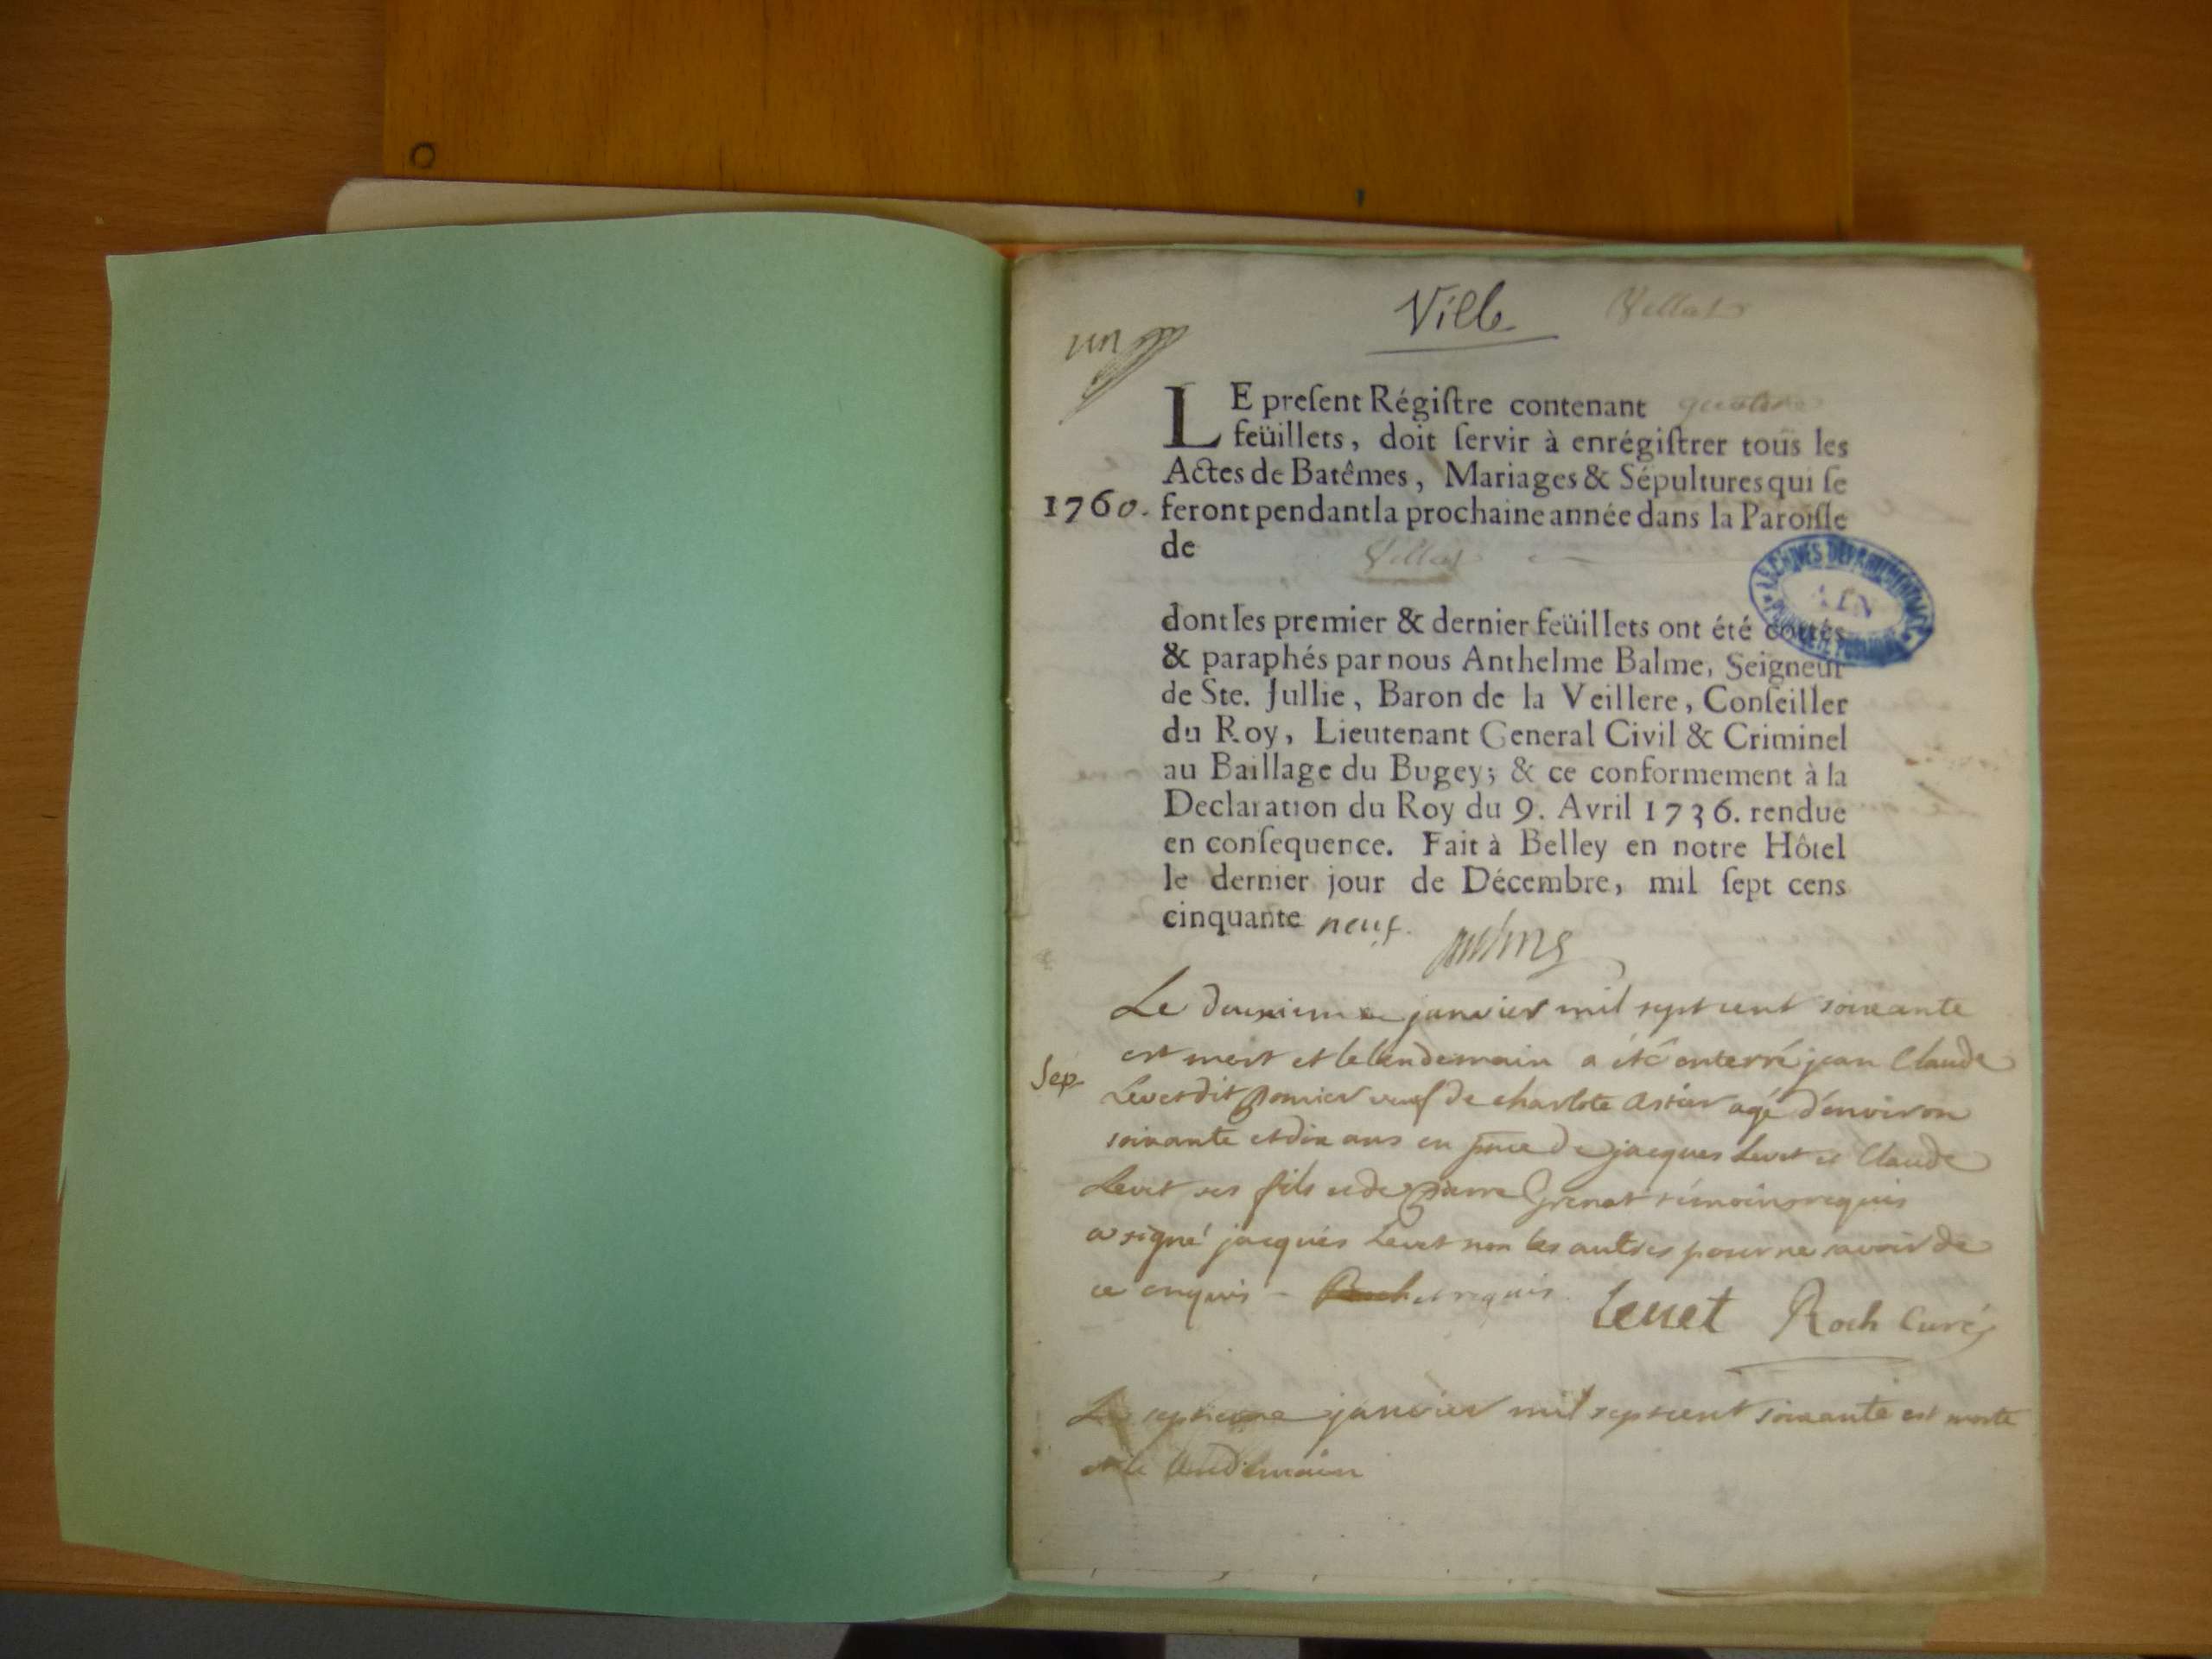 Ville
un
LE preſent Régiſtre contenant
feüillets, doit ſervir à enrégiſtrer toüs les
Actes de Batêmes, Mariages & Sépultures qui ſe
1760. feront pendant la prochaine année dans la Paroiſſe
de
dont les premier & dernier feüillets ont été cottés
& paraphés par nous Anthelme Balme, Seigneur
de Ste. Jullie, Baron de la Veillere, Conſeiller
du Roy, Lieutenant General Civil & Criminel
au Baillage du Bugey; & ce conformement à la
Declaration du Roy du 9. Avril 1736. rendue
en conſequence. Fait à Belley en notre Hôtel
le dernier jour de Décembre, mil ſept cens
cinquante neuf.
ARCHIVES DEPARTEMENTALES AIN
Le janvier mil sept cent soixante
est mort et le lendemain a été enterré jean Claude
Sep.
Levet dit veuf de charlote agé d'environ
soixante et dix ans en pnce de jacques Levet et Claude
Levet ses fils et de pierre Grenat témoins requis
a signé jacques Levet non les autres pour ne savoir de
ce enquis et requis.
Levet Roch Curé
Le septieme janvier mil sept cent soixante est morte
et le lendemain